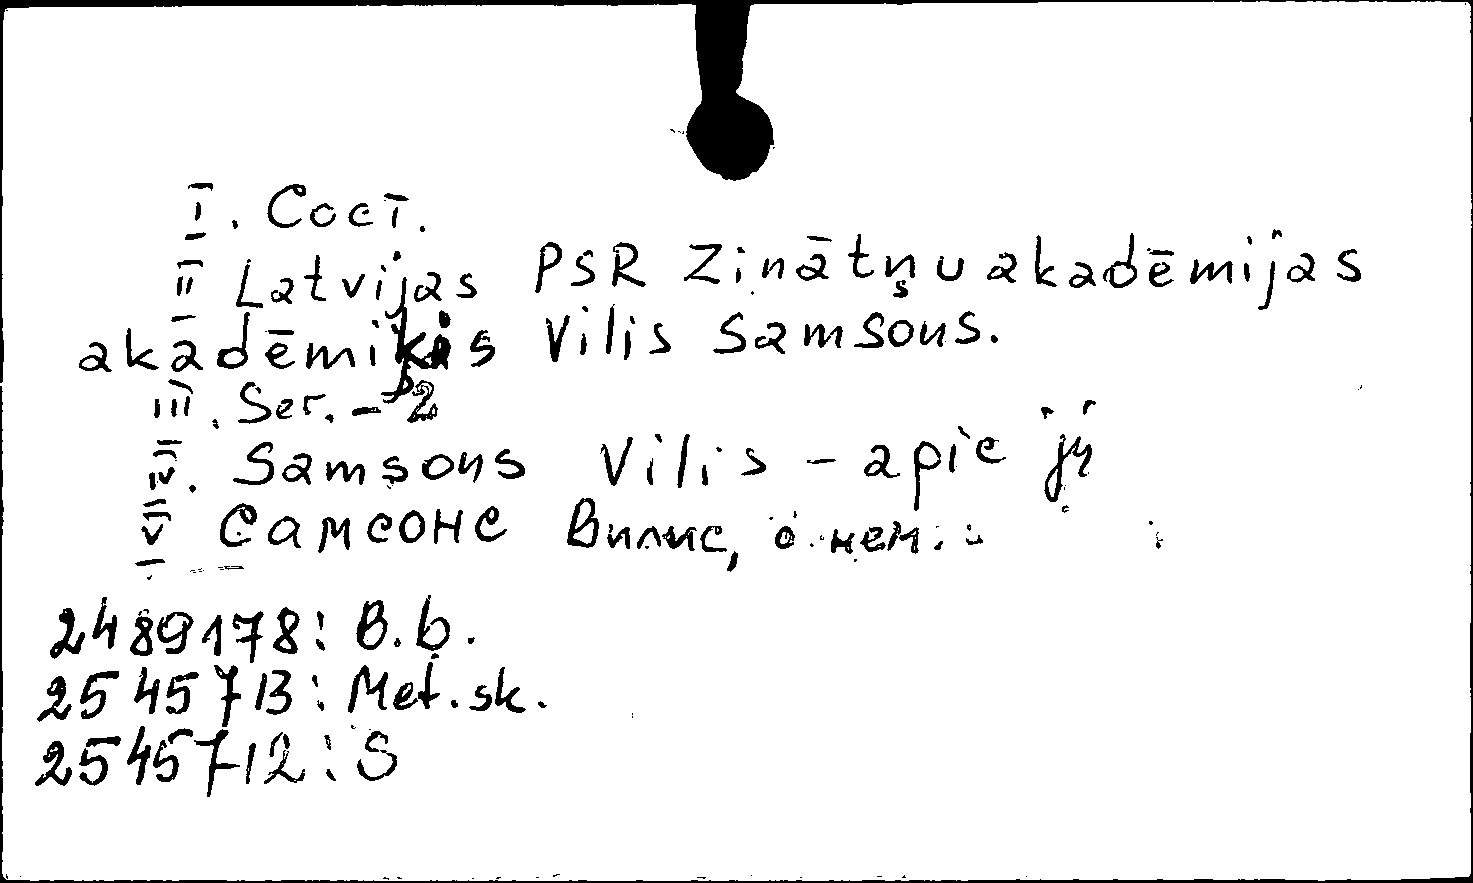 I. Сост.
II Latvijas PSR Zinātņu akadēmijas
akadēmiķis Vilis Samsons.
III. Ser. - 2
IV. Samsons Vilis - apie jį
V Самсонс Вилис, о нем.
2489178: B.b.
2545713: Met.sk.
2545712: S